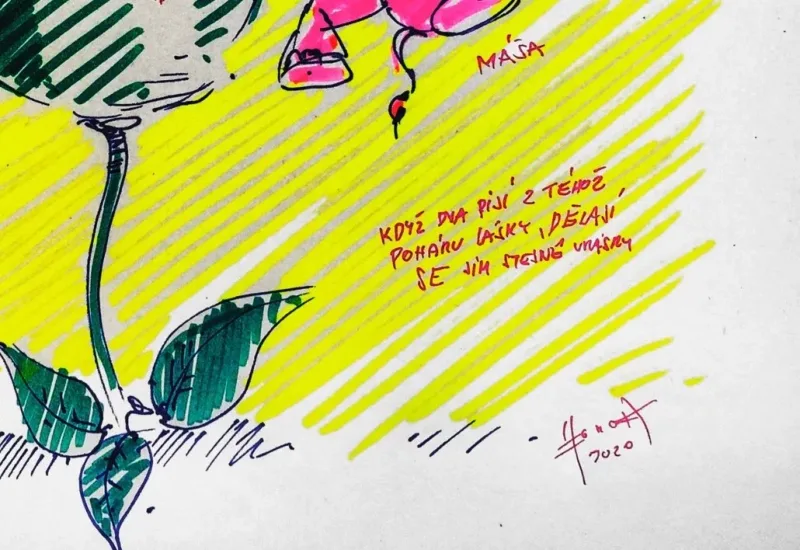 MÁŠA
KDYŽ DVA PIJÍ Z TÉHOŽ
POHÁRU LÁSKY, DĚLAJÍ
SE JIM STEJNÉ VRÁSKY
2020